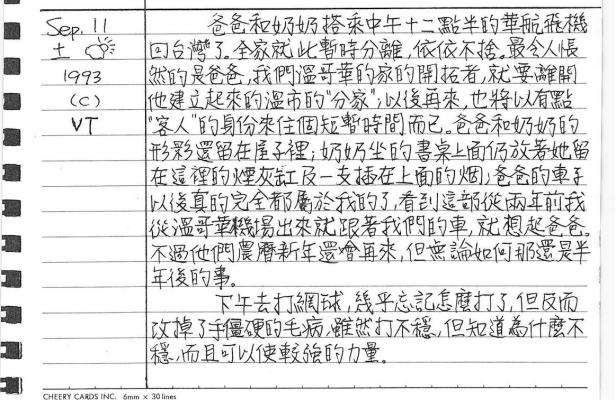 Sep. 11
土
1993
(C)
VT
爸爸和奶奶搭乘中午十二點半的華航飛機
回台灣了。全家就此暫時分離,依依不捨。最令人悵
然的是爸爸,我們溫哥華的家的開拓者,就要離開
他建立起來的溫市的"分家";以後再來,也將以有點
"客人"的身份來住個短暫時間而已。爸爸和奶奶的
形影還留在屋子裡;奶奶坐的書桌上面仍放著她留
在這裡的煙灰缸及一支插在上面的烟;爸爸的車子
以後真的完全都屬於我的了,看到這部從兩年前我
從溫哥華機場出來就跟著我們的車,就想起爸爸。
不過他們農曆新年還會再來,但無論如何那還是半
年後的事。
下午去打網球,幾乎忘記怎麼打了,但反而
改掉了手僵硬的毛病,雖然打不穩,但知道為什麼不
穩,而且可以使較強的力量。
CHEERY CARDS INC. 6mm × 30 lines